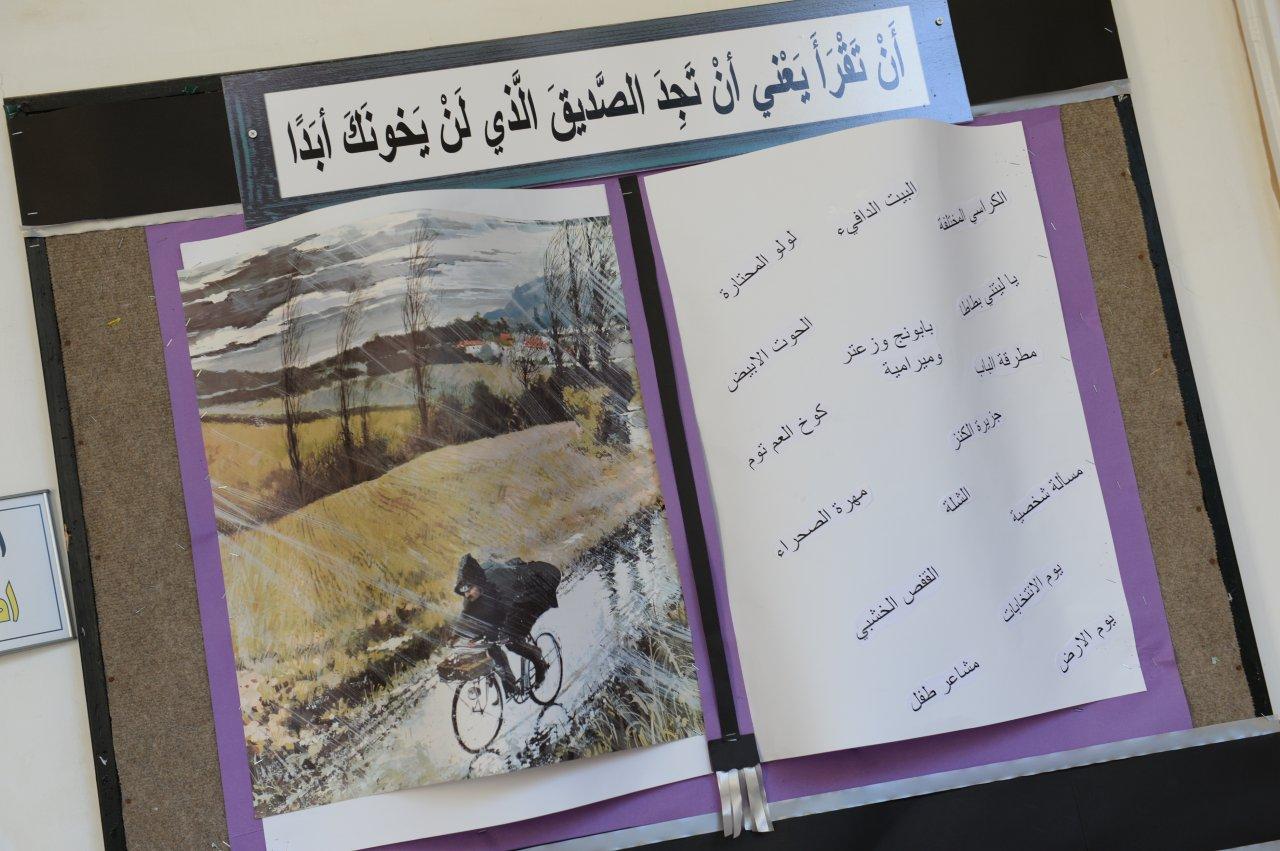 أَنْ تَقْرَأَ يَعْني أنْ تَجِدَ الصَّديقَ الَّذي لَنْ يَخونَكَ أبَدًا
الكراسي المختلفة
البيت الدافيء
لولو المحتارة
يا ليتني بطاطا
بابونج وزعتر
وميرامية
الحوت الابيض
مطرقة الباب
جزيرة الكنز
كوخ العم توم
مسألة شخصية
الشلة
مهرة الصحراء
يوم الانتخابات
القفص الخشبي
يوم الارض
مشاعر طفل